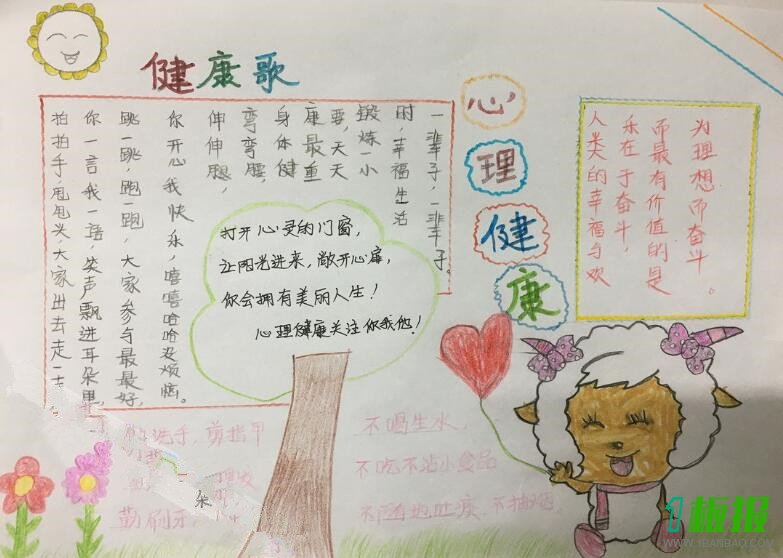 健康歌
拍拍手,甩甩头,大家出去走一走
你一言我一语,笑声飘进耳朵里
跳一跳,跑一跑,大家参与最最好,
你开心,我快乐,嘻嘻哈哈没烦恼。
伸伸腿,
弯弯腰,
身体健
康最重
要,天天
锻炼一小
时,幸福生活
一辈子,一辈子。
心理健康
人类的幸福与欢
乐在于奋斗,
而最有价值的是
为理想而奋斗。
打开心灵的门窗,
让阳光进来,敞开心扉,
你会拥有美丽人生!
心理健康关注你我他!
洗手,剪指甲
勤刷牙
不喝生水,
不吃不洁小食品
不随地吐痰,不抽烟。
1板报
WWW.1BANBAO.COM